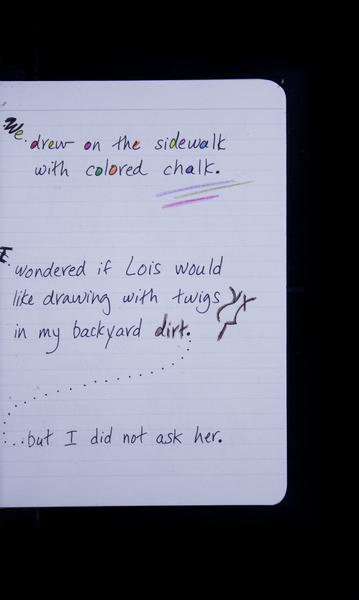 We drew on the sidewalk
with colored chalk.
I wondered if Lois would
like drawing with twigs
in my backyard dirt.
...but I did not ask her.